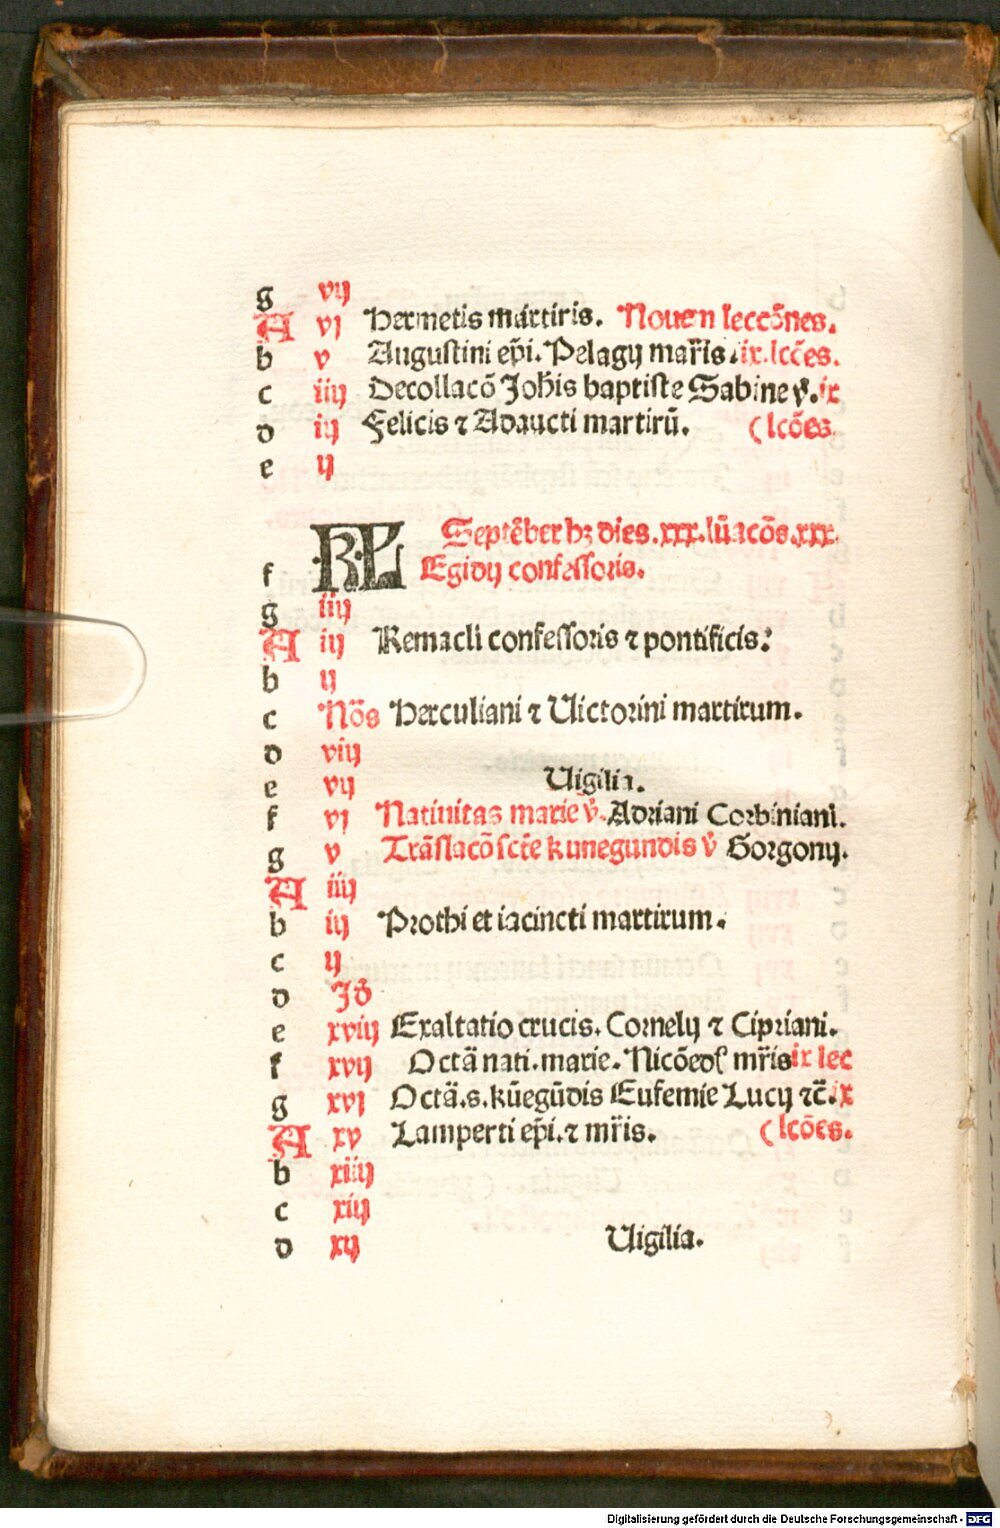 g vij
A vj Hermetis martiris. Nouem leccōnes.
b v Augustini ep̄i. Pelagij mar̄is. ix. lcōes.
c iiij Decollacō Joh̄is baptiste Sabine v̄. ix
d iij Felicis ⁊ Adaucti martirū. (lcōes.
e ij
KL Septēber hꝫ dies. xxx. lūacōs. xxx.
f Egidij confessoris.
g iiij
A iij Remacli confessoris ⁊ pontificis.
b ij
c Nōs Herculiani ⁊ Uictorini martirum.
d viij
e vij Uigilia.
f vj Natiuitas marie v̄. Adriani Corbiniani.
g v Trāslacō scte kunegundis v̄ Gorgonij.
A iiij
b iij Prothi et iacincti martirum.
c ij
d Jd
e xviij Exaltatio crucis. Cornelij ⁊ Cipriani.
f xvij Octā nati. marie. Nicōed mr̄is ix lec
g xvj Octā. s. kūegūdis Eufemie Lucij ⁊c̄. ix
A xv Lamperti ep̄i. ⁊ mr̄is. (lcōes.
b xiiij
c xiij
d xij Uigilia.
Digitalisierung gefördert durch die Deutsche Forschungsgemeinschaft - DFG